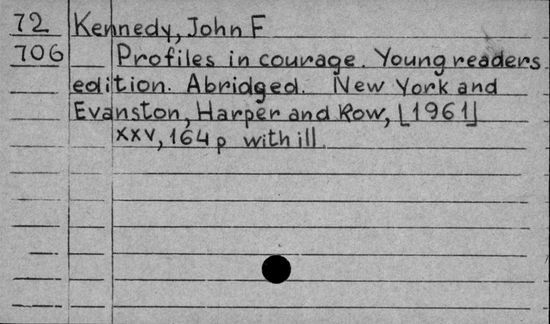 72 Kennedy, John F
706 Profiles in courage. Young readers
edition. Abridged. New York and
Evanston, Harper and Row, [1961]
xxv, 164 p with ill.